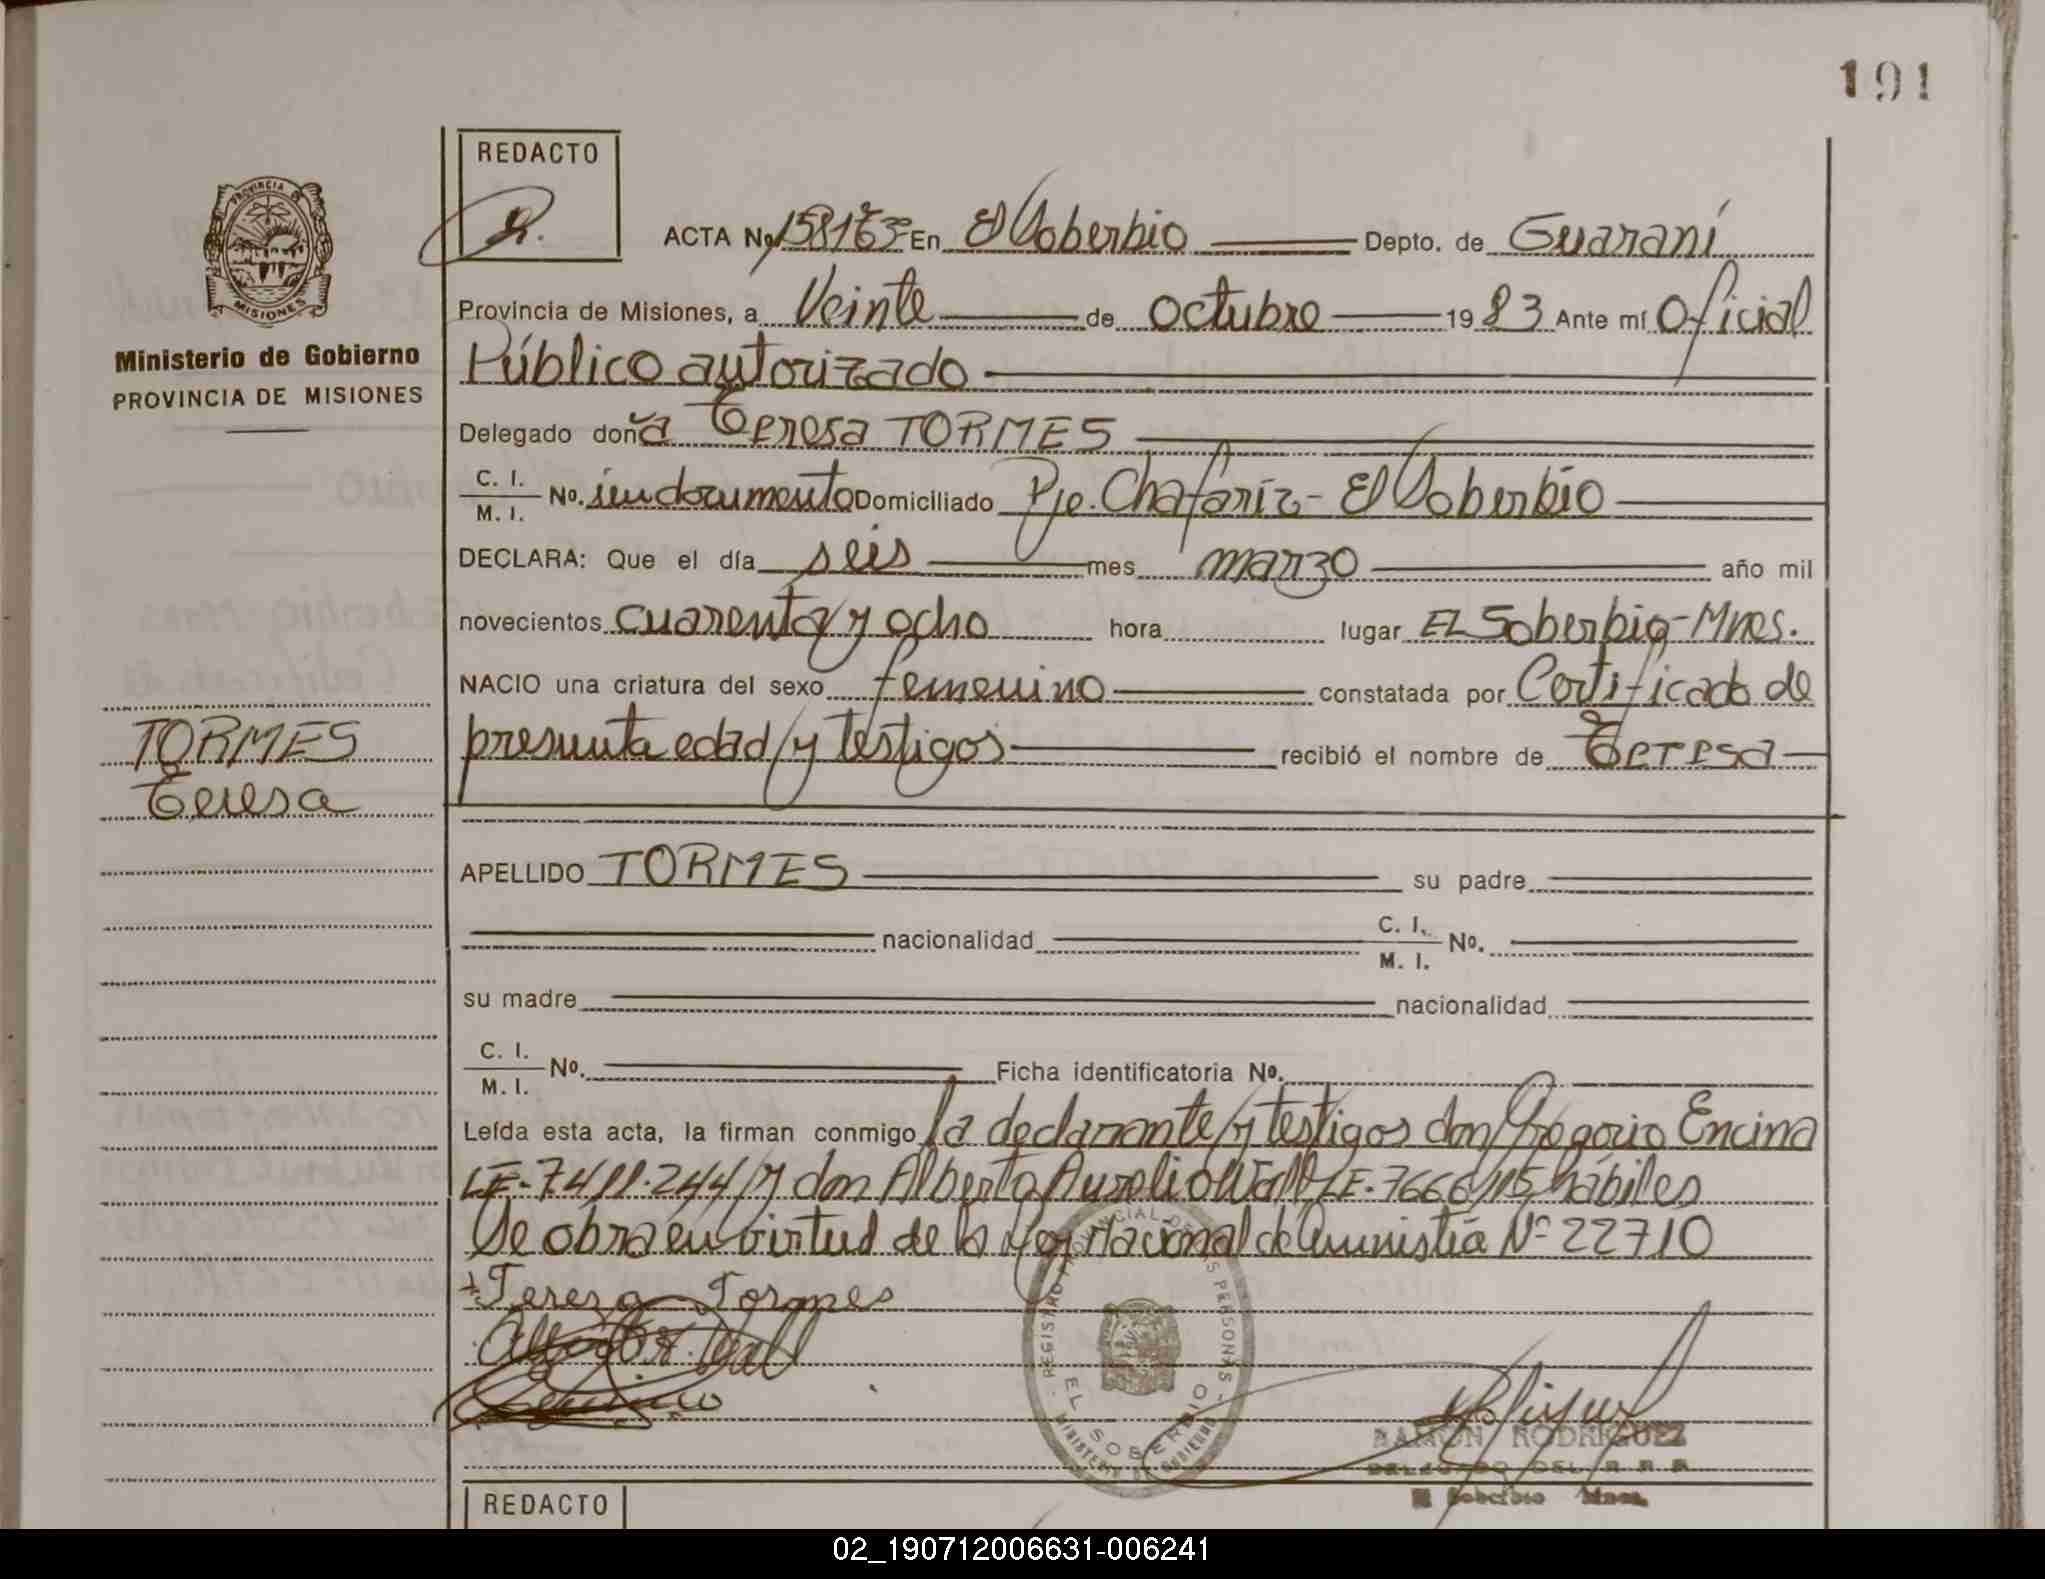 191
REDACTO
PROVINCIA DE
MISIONES
Ministerio de Gobierno
PROVINCIA DE MISIONES
ACTA No En El Soberbio Depto. de Guaraní
Provincia de Misiones, a Veinte de octubre 1983 Ante mí Oficial
Público autorizado
Delegado doña Teresa TORMES
C. I.
M. I. No. sin documento Domiciliado Pje. Chafariz - El Soberbio
DECLARA: Que el día seis mes marzo año mil
novecientos cuarenta y ocho hora lugar EL Soberbio - Mnes.
NACIO una criatura del sexo femenino constatada por Certificado de
presunta edad y testigos recibió el nombre de Teresa
TORMES
Teresa
APELLIDO TORMES su padre
nacionalidad C. I. M. I. No.
su madre nacionalidad
C. I.
M. I. No. Ficha identificatoria No.
Leída esta acta, la firman conmigo la declarante y testigos don Gregorio Encina
LE-7411.244 y don Alberto Aurelio Wall LE-7666 hábiles
Se obra en virtud de la Ley Nacional de Amnistía Nº 22710
+ Tereza Tormes
REGISTRO PROVINCIAL DE LAS PERSONAS
EL SOBERBIO
MINISTERIO DE GOBIERNO
RAMON RODRIGUEZ
DELEGADO DEL R.P.P.
El Soberbio Mnes.
REDACTO
02_190712006631-006241